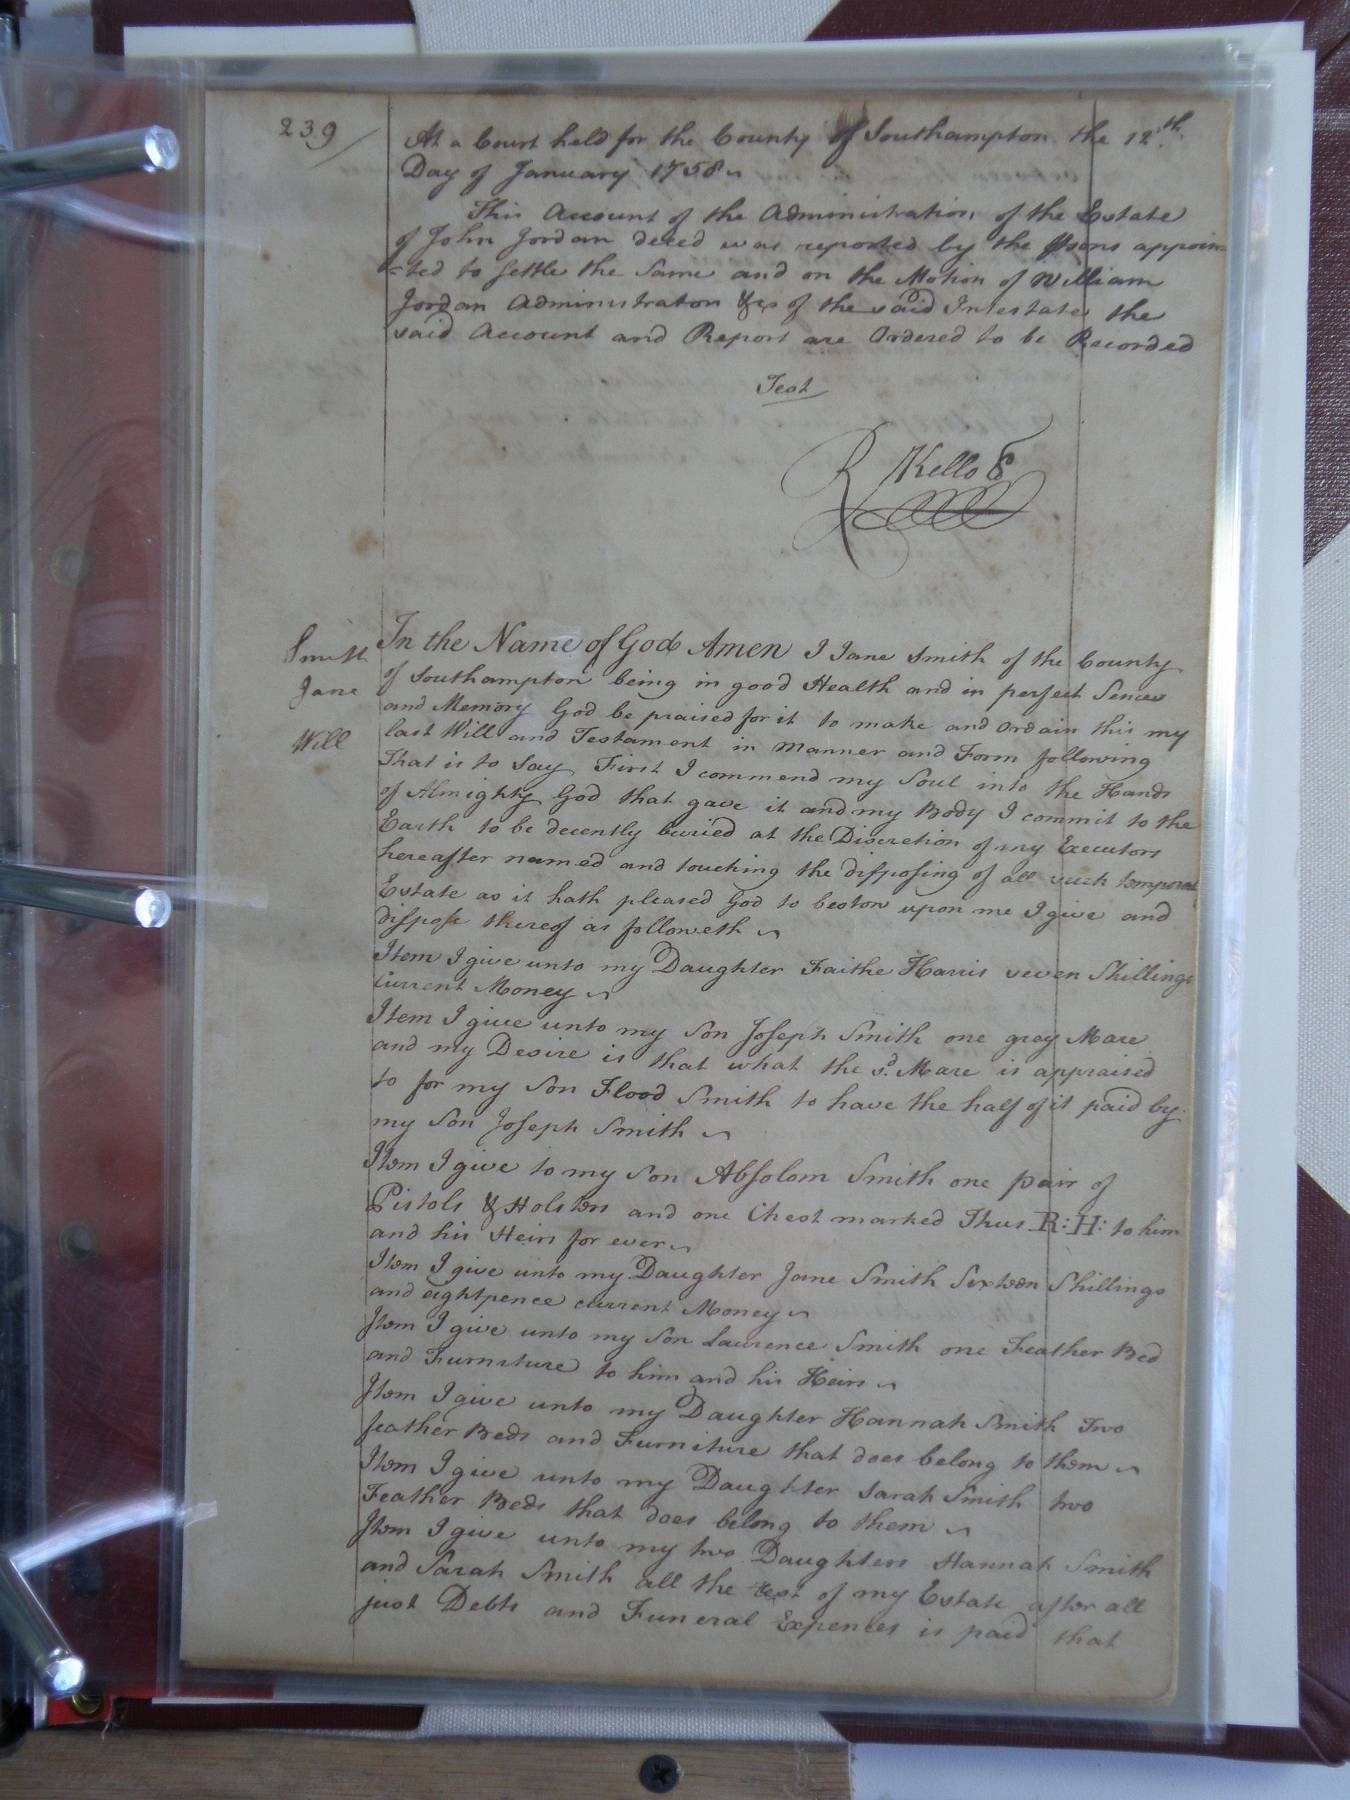 239
At a Court held for the County of Southampton the 12th
Day of January 1758
This Account of the Administration of the Estate
of John Jordan deced was reported by the appoin-
-ted to settle the Same and on the Motion of William
Jordan Administrator &c of the said Intestate the
said Account and Report are Ordered to be Recorded
Test
R Kello
Smith
Jane
Will
In the Name of God Amen I Jane Smith of the County
of Southampton being in good Health and in perfect Sences
and Memory God be praised for it to make and ordain this my
last Will and Testament in manner and Form following
That is to Say First I commend my Soul into the Hands
of Almighty God that gave it and my Body I commit to the
Earth to be decently buried at the Discretion of my Executors
hereafter named and touching the disposing of all such temporal
Estate as it hath pleased God to bestow upon me I give and
dispose thereof as followeth
Item I give unto my Daughter Faithe Harris seven Shillings
Current Money
Item I give unto my Son Joseph Smith one gray Mare
and my Desire is that what the sd. Mare is appraised
to for my Son Flood Smith to have the half of it paid by
my Son Joseph Smith
Item I give to my Son Absolom Smith one pair of
Pistols & Holsters and one Chest marked Thus R:H: to him
and his Heirs for ever
Item I give unto my Daughter Jane Smith Sixteen Shillings
and eightpence current Money
Item I give unto my Son Laurence Smith one Feather Bed
and Furniture to him and his Heirs
Item I give unto my Daughter Hannah Smith Two
feather Beds and Furniture that does belong to them
Item I give unto my Daughter Sarah Smith two
Feather Beds that does belong to them
Item I give unto my two Daughters Hannah Smith
and Sarah Smith all the rest of my Estate after all
just Debts and Funeral Expences is paid that